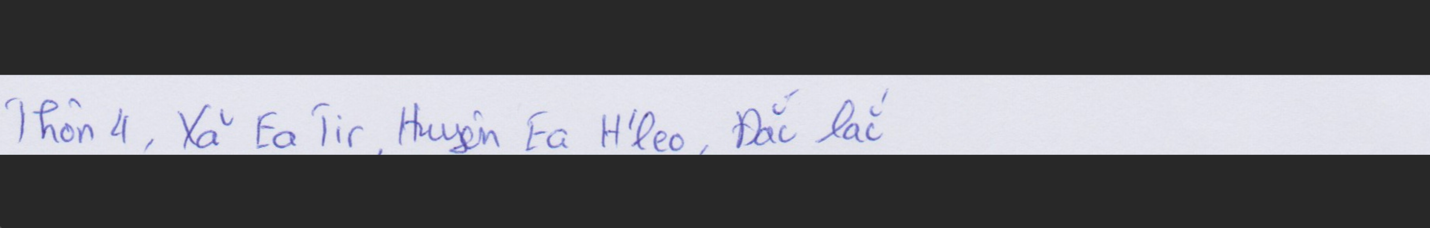 Thôn 4, Xã Ea Tir, Huyện Ea H'leo, Đắc lắc